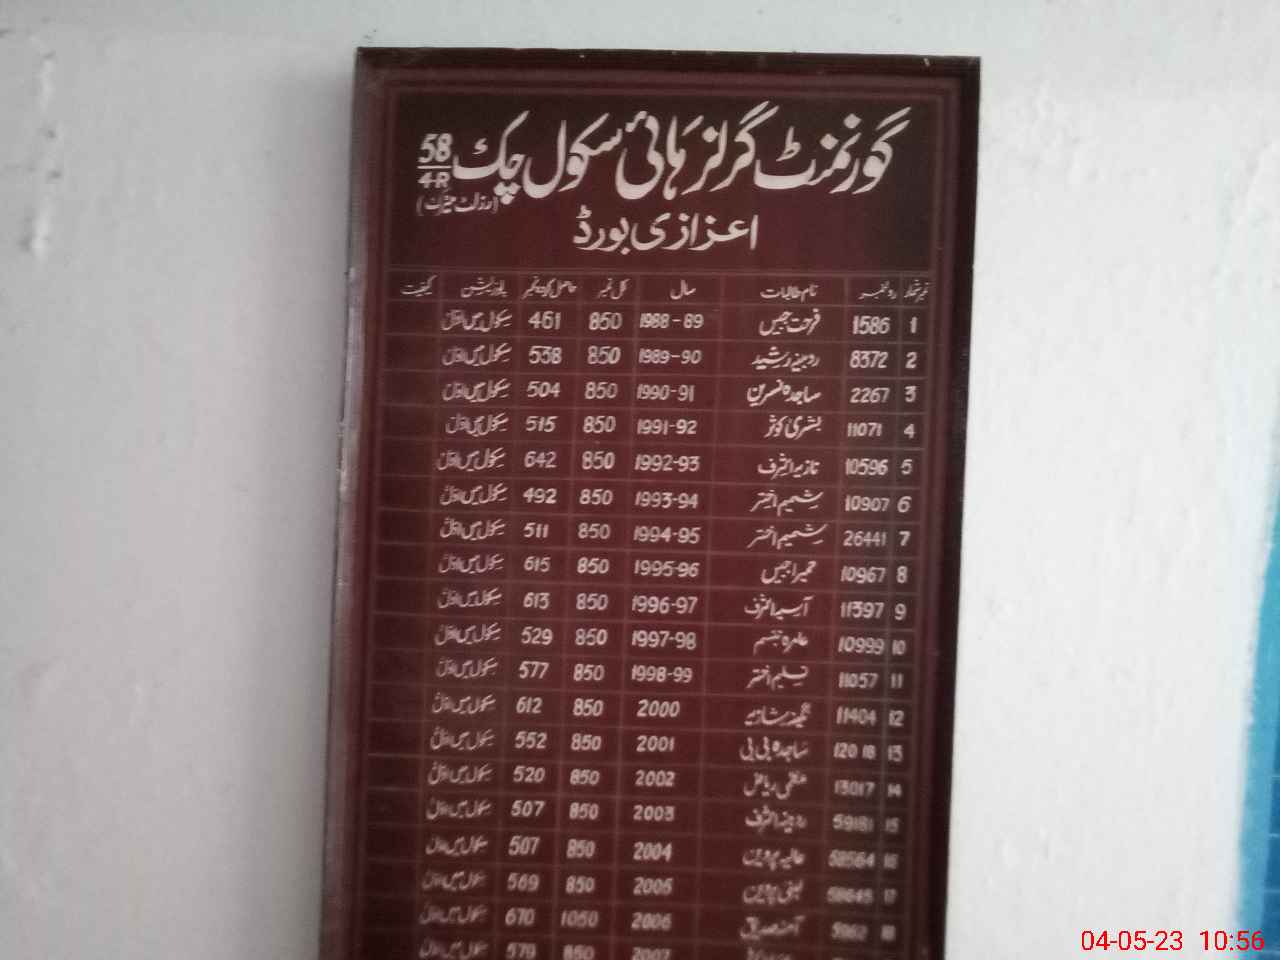 گورنمنٹ گرلز ہائی سکول چک 58/4-R
(رزلٹ میٹرک)
اعزازی بورڈ
نمبر شمار رولنمبر نام طالبات سال کل نمبر حاصل کردہ نمبر پوزیشن کیفیت
1 1586 فرحت جبیں 1988-89 850 461 سکول میں اوّل
2 8372 روبینہ رشید 1989-90 850 538 سکول میں اوّل
3 2267 ساجدہ نسرین 1990-91 850 504 سکول میں اوّل
4 11071 بشریٰ کوثر 1991-92 850 515 سکول میں اوّل
5 10596 نازیہ اشرف 1992-93 850 642 سکول میں اوّل
6 10907 شمیم اختر 1993-94 850 492 سکول میں اوّل
7 26441 شمیم اختر 1994-95 850 511 سکول میں اوّل
8 10967 حمیرا جبیں 1995-96 850 615 سکول میں اوّل
9 11397 آسیہ اشرف 1996-97 850 613 سکول میں اوّل
10 10999 عامرہ تبسم 1997-98 850 529 سکول میں اوّل
11 11057 تسلیم اختر 1998-99 850 577 سکول میں اوّل
12 11404 نگینہ شازیہ 2000 850 612 سکول میں اوّل
13 12018 ساجدہ بی بی 2001 850 552 سکول میں اوّل
14 13017 عظمی ریاض 2002 850 520 سکول میں اوّل
15 59181 روبینہ اشرف 2003 850 507 سکول میں اوّل
16 58564 عالیہ پروین 2004 850 507 سکول میں اوّل
17 58645 لبنیٰ پروین 2005 850 569 سکول میں اوّل
18 آمنہ صدیق 2006 1050 670 سکول میں اوّل
2007 850 579 سکول میں اوّل
04-05-23 10:56